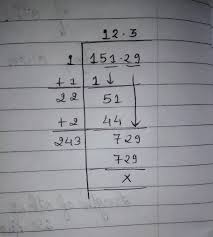 12.3
1 151.29
+1 1
22 51
+2 44
243 729
729
x